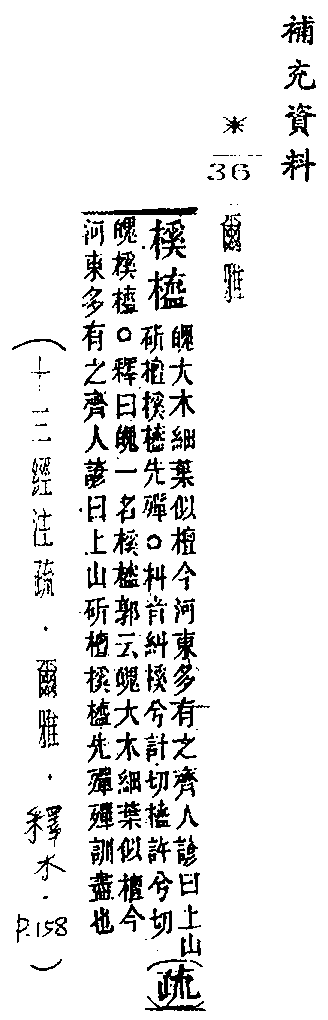 補充資料
*
36
爾雅
櫘橀
魄大木細葉似檀今河東多有之齊人諺曰上山
斫檀榽橀先殫○朻音糾榽兮計切橀許兮切
(疏)
魄榽橀○釋曰魄一名榽橀郭云魄大木細葉似檀今
河東多有之齊人諺曰上山斫檀榽橀先殫殫訓盡也
(十三經注疏．爾雅．釋木．P.158)